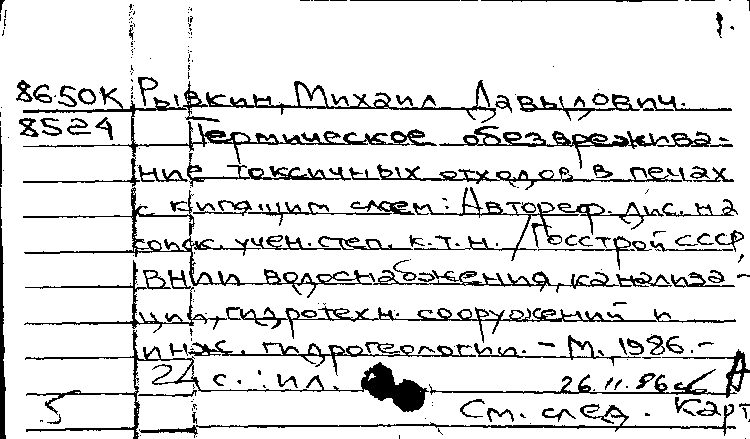 1.
8650К Рывкин, Михаил Давыдович.
8524 Термическое обезврежива-
ние токсичных отходов в печах
с кипящим слоем: Автореф. дис. на
соиск. учен. степ. к.т.н. / Госстрой СССР,
ВНИИ водоснабжения, канализа-
ции, гидротехн. сооружений и
инж. гидрогеологии. - М., 1986. -
24 с. : ил. 26.11.86 А
5 См. след. карт